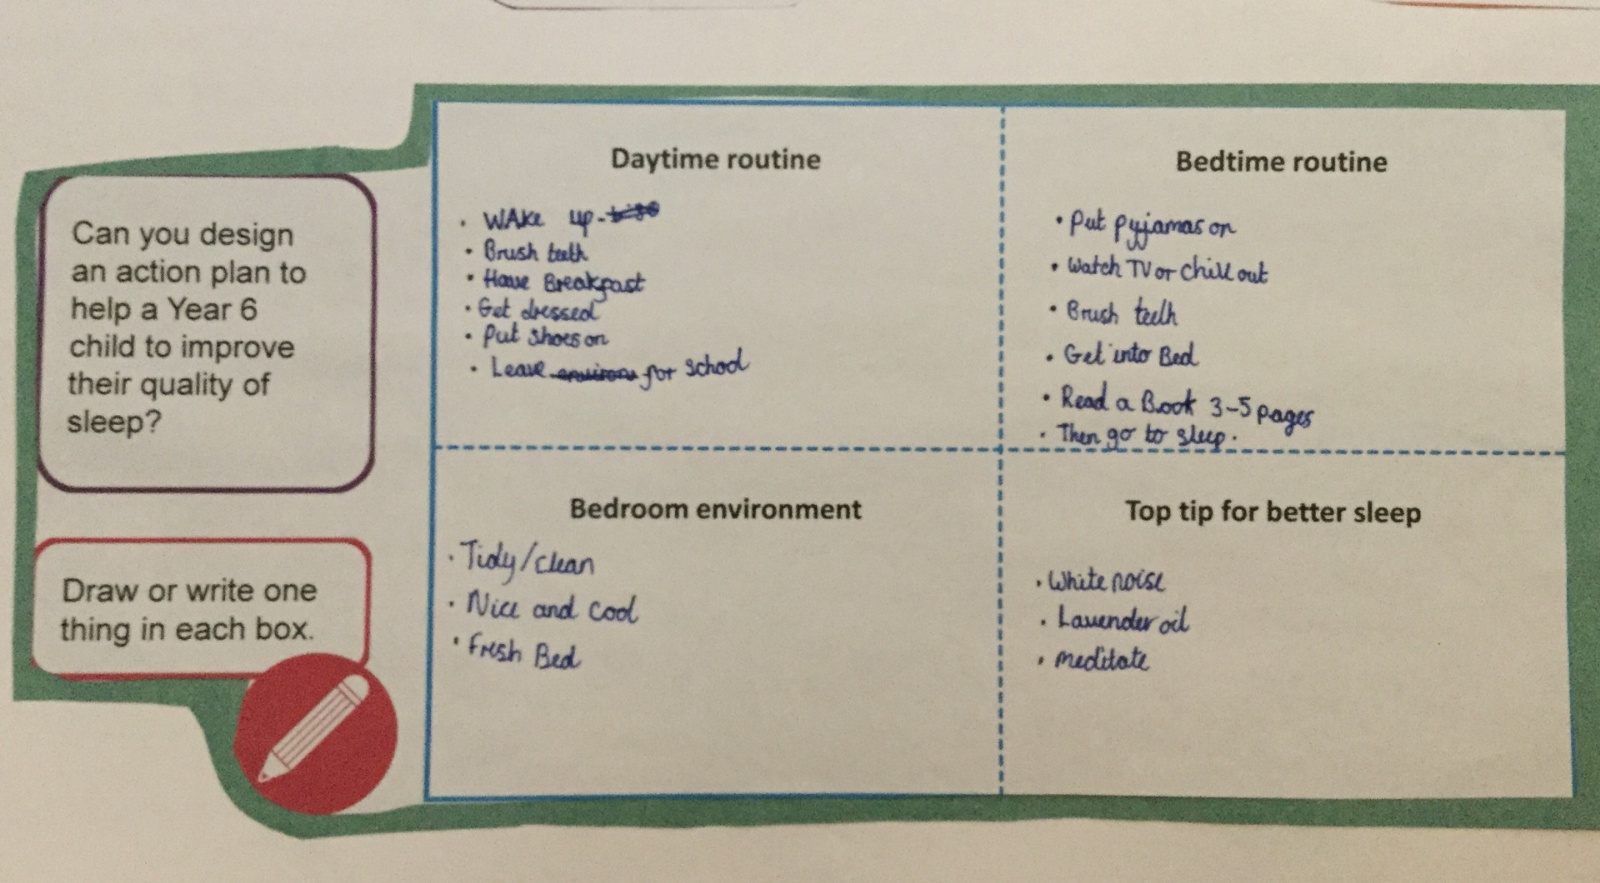 Can you design
an action plan to
help a Year 6
child to improve
their quality of
sleep?
Draw or write one
thing in each box.
Daytime routine
• WAke up -
• Brush teeth
• Have Breakfast
• Get dressed
• Put shoes on
• Leave for school
Bedtime routine
• Put pyjamas on
• Watch TV or chill out
• Brush teeth
• Get into Bed
• Read a Book 3-5 pages
• Then go to sleep.
Bedroom environment
• Tidy/clean
• Nice and cool
• Fresh Bed
Top tip for better sleep
• White noise
• Lavender oil
• meditate